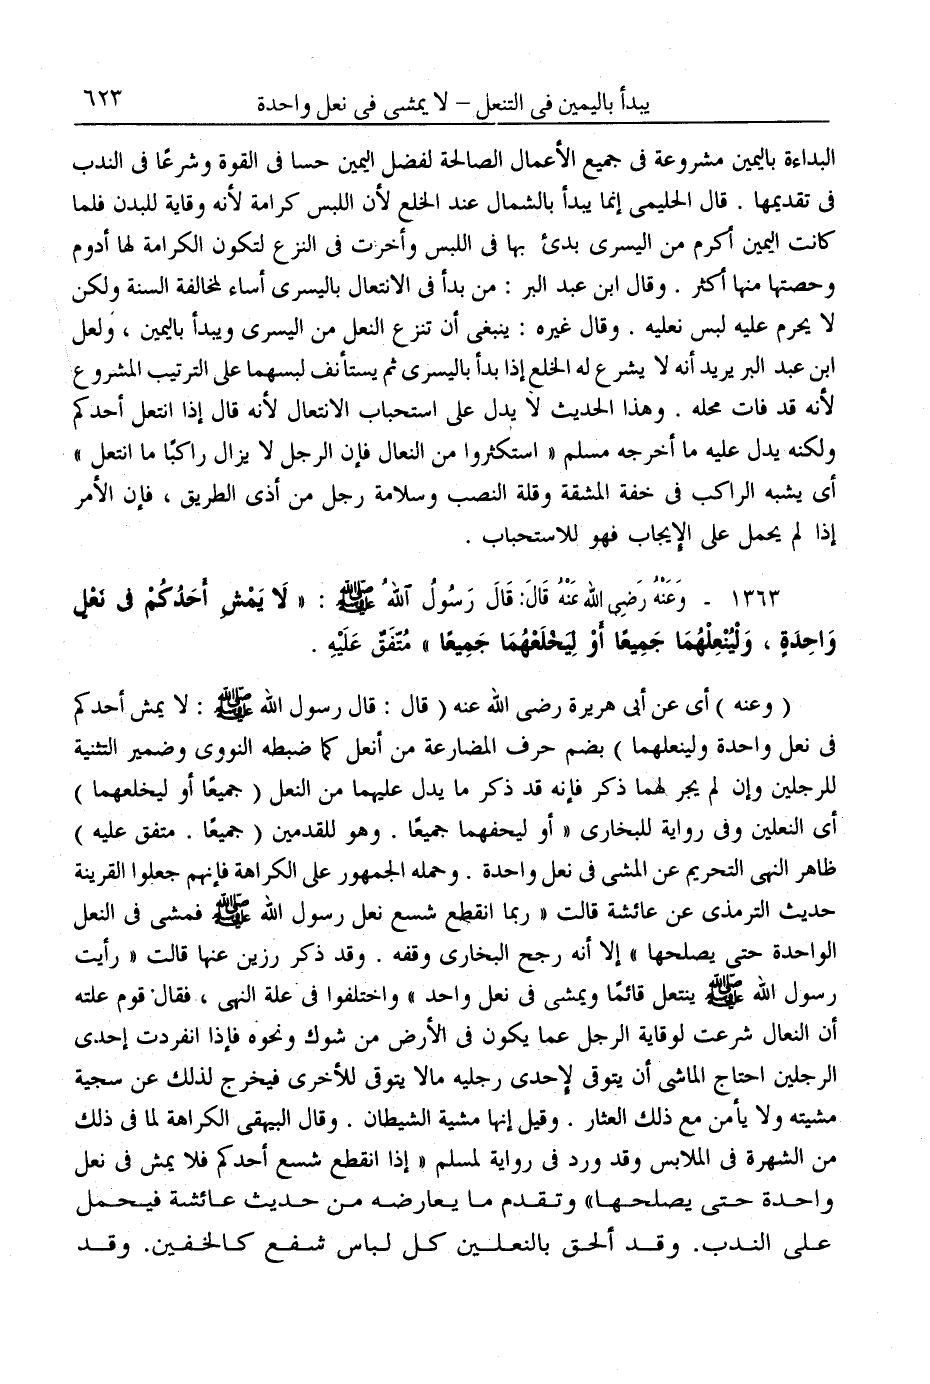 يبدأ باليمين فى التنعل – لا يمشى فى نعل واحدة ٦٢٣
البداءة باليمين مشروعة فى جميع الأعمال الصالحة لفضل اليمين حسا فى القوة وشرعًا فى الندب
فى تقديمها . قال الحليمى إنما يبدأ بالشمال عند الخلع لأن اللبس كرامة لأنه وقاية للبدن فلما
كانت اليمين أكرم من اليسرى بدئ بها فى اللبس وأخرت فى النزع لتكون الكرامة لها أدوم
وحصتها منها أكثر . وقال ابن عبد البر : من بدأ فى الانتعال باليسرى أساء لمخالفة السنة ولكن
لا يحرم عليه لبس نعليه . وقال غيره : ينبغى أن تنزع النعل من اليسرى ويبدأ باليمين ، ولعل
ابن عبد البر يريد أنه لا يشرع له الخلع إذا بدأ باليسرى ثم يستأنف لبسهما على الترتيب المشروع
لأنه قد فات محله . وهذا الحديث لا يدل على استحباب الانتعال لأنه قال إذا انتعل أحدكم
ولكنه يدل عليه ما أخرجه مسلم « استكثروا من النعال فإن الرجل لا يزال راكبًا ما انتعل »
أى يشبه الراكب فى خفة المشقة وقلة النصب وسلامة رجل من أذى الطريق ، فإن الأمر
إذا لم يحمل على الإيجاب فهو للاستحباب .
١٣٦٣ ـ وَعَنْهُ رَضِي الله عَنْهُ قَالَ: قَالَ رَسُولُ ٱللهُ ﷺ : « لَا يَمْشِ أَحَدُكُمْ فى نَعْلٍ
وَاحِدَةٍ ، وَلْيُنْعِلْهُمَا جَمِيعًا أَوْ لِيَخْلَعْهُمَا جَمِيعًا » مُتّفَقٌ عَلَيْهِ .
( وعنه ) أى عن أبى هريرة رضى الله عنه ( قال : قال رسول الله ﷺ : لا يمش أحدكم
فى نعل واحدة ولينعلهما ) بضم حرف المضارعة من أنعل كما ضبطه النووى وضمير التثنية
للرجلين وإن لم يجر لهما ذكر فإنه قد ذكر ما يدل عليهما من النعل ( جميعًا أو ليخلعهما )
أى النعلين وفى رواية للبخارى « أو ليحفهما جميعًا . وهو للقدمين ( جميعًا . متفق عليه )
ظاهر النهى التحريم عن المشى فى نعل واحدة . وحمله الجمهور على الكراهة فإنهم جعلوا القرينة
حديث الترمذى عن عائشة قالت « ربما انقطع شسع نعل رسول الله ﷺ فمشى فى النعل
الواحدة حتى يصلحها » إلا أنه رجح البخارى وقفه . وقد ذكر رزين عنها قالت « رأيت
رسول الله ﷺ ينتعل قائمًا ويمشى فى نعل واحد » واختلفوا فى علة النهى ، فقال قوم علته
أن النعال شرعت لوقاية الرجل عما يكون فى الأرض من شوك ونحوه فإذا انفردت إحدى
الرجلين احتاج الماشى أن يتوقى لإحدى رجليه مالا يتوقى للأخرى فيخرج لذلك عن سجية
مشيته ولا يأمن مع ذلك العثار . وقيل إنها مشية الشيطان . وقال البيهقى الكراهة لما فى ذلك
من الشهرة فى الملابس وقد ورد فى رواية لمسلم « إذا انقطع شسع أحدكم فلا يمش فى نعل
واحدة حتى يصلحها» وتقدم ما يعارضه من حديث عائشة فيحمل
على الندب. وقد ألحق بالنعلين كل لباس شفع كالخفين. وقد